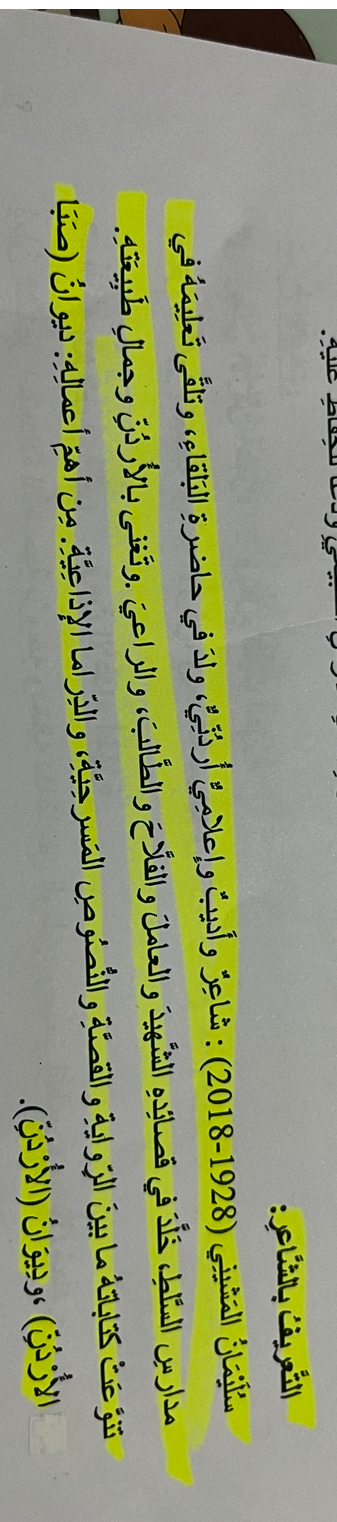 التَّعريفُ بالشَّاعرِ:
سُلَيْمَانُ المَشّيني (1928-2018) : شاعِرٌ وأَديبٌ وإعلاميٌّ أُردُنّيٌّ، ولدَ في حاضرةِ البَلقاءِ، وتلقَّى تَعليمَهُ في
مدارسِ السَّلطِ، خَلَّدَ في قصائدِهِ الشَّهيدَ والعاملَ والفَلَّاحَ والطَّالبَ، والراعيَ .وتَغنى بالأُردُنّ وجمالِ طَبيعَتِهِ.
تنوَّعَتْ كتاباتُهُ ما بينَ الرّوايةِ والقصَّةِ والنُّصُوصِ المَسرحيَّةِ، والدّراما الإذاعيَّةِ. مِن أهمّ أعمالِهِ: ديوانُ (صَبَا
الأُرْدُنِّ) ،ودِيوَانُ (الأُرْدُنِّ).